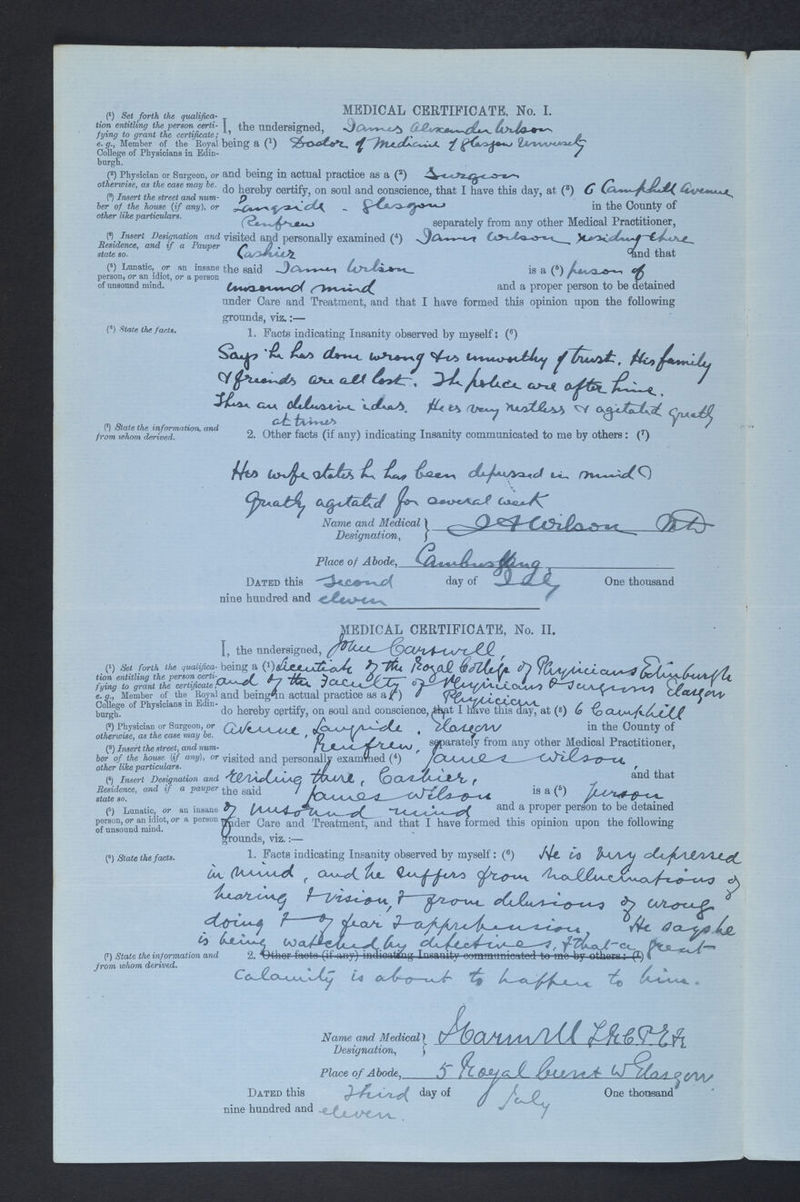 MEDICAL CERTIFICATE, No. I.
(¹) Set forth the qualifica-
tion entitling the person certi-
fying to grant the certificate;
e. g., Member of the Royal
College of Physicians in Edin-
burgh.
I, the undersigned, James Alexander Wilson
being a (¹) Doctor of Medicine of Glasgow University
(²) Physician or Surgeon, or
otherwise, as the case may be.
and being in actual practice as a (²) Surgeon
(³) Insert the street and num-
ber of the house (if any), or
other like particulars.
do hereby certify, on soul and conscience, that I have this day, at (³) 6 Camphill Avenue
Langside - Glasgow in the County of
Renfrew separately from any other Medical Practitioner,
(⁴) Insert Designation and
Residence, and if a Pauper
state so.
visited and personally examined (⁴) James Wilson residing there
Cashier and that
(⁵) Lunatic, or an insane
person, or an idiot, or a person
of unsound mind.
the said James Wilson is a (⁵) person of
unsound mind and a proper person to be detained
under Care and Treatment, and that I have formed this opinion upon the following
grounds, viz.:—
(⁶) State the facts.
1. Facts indicating Insanity observed by myself: (⁶)
Says he has done wrong & is unworthy of trust. His family
& friends are all lost. The police are after him.
These are delusive ideas. He is very restless & agitated greatly
at times
(⁷) State the information, and
from whom derived.
2. Other facts (if any) indicating Insanity communicated to me by others: (⁷)
His wife states he has been depressed in mind &
greatly agitated for several week
Name and Medical Designation, J A Wilson MD
Place of Abode, Cambuslang
DATED this Second day of July One thousand
nine hundred and eleven
MEDICAL CERTIFICATE, No. II.
I, the undersigned, John Carswell,
(¹) Set forth the qualifica-
tion entitling the person certi-
fying to grant the certificate;
e. g., Member of the Royal
College of Physicians in Edin-
burgh.
being a (¹) Licentiate of the Royal College of Physicians Edinburgh
and of the Faculty of Physicians & Surgeons Glasgow
and being in actual practice as a (²) Physician
(²) Physician or Surgeon, or
otherwise, as the case may be.
do hereby certify, on soul and conscience, that I have this day, at (³) 6 Camphill
Avenue, Langside, Glasgow in the County of
(³) Insert the street, and num-
ber of the house (if any), or
other like particulars.
Renfrew, separately from any other Medical Practitioner,
visited and personally examined (⁴) James Wilson,
(⁴) Insert Designation and
Residence, and if a pauper
state so.
residing there, Cashier, and that
the said James Wilson is a (⁵) person
(⁵) Lunatic, or an insane
person, or an idiot, or a person
of unsound mind.
of unsound mind and a proper person to be detained
under Care and Treatment, and that I have formed this opinion upon the following
grounds, viz.:—
(⁶) State the facts.
1. Facts indicating Insanity observed by myself: (⁶) He is very depressed
in mind, and he suffers from hallucinations of
hearing & vision, & from delusions of wrong
doing & of fear & apprehension. He says he
is being watched by detectives, & that a great
(⁷) State the information and
from whom derived.
2. Other facts (if any) indicating Insanity communicated to me by others: (⁷)
calamity is about to happen to him.
Name and Medical Designation, J Carswell LRCPEd
Place of Abode, 5 Royal Cresct W Glasgow
DATED this Third day of July One thousand
nine hundred and eleven.